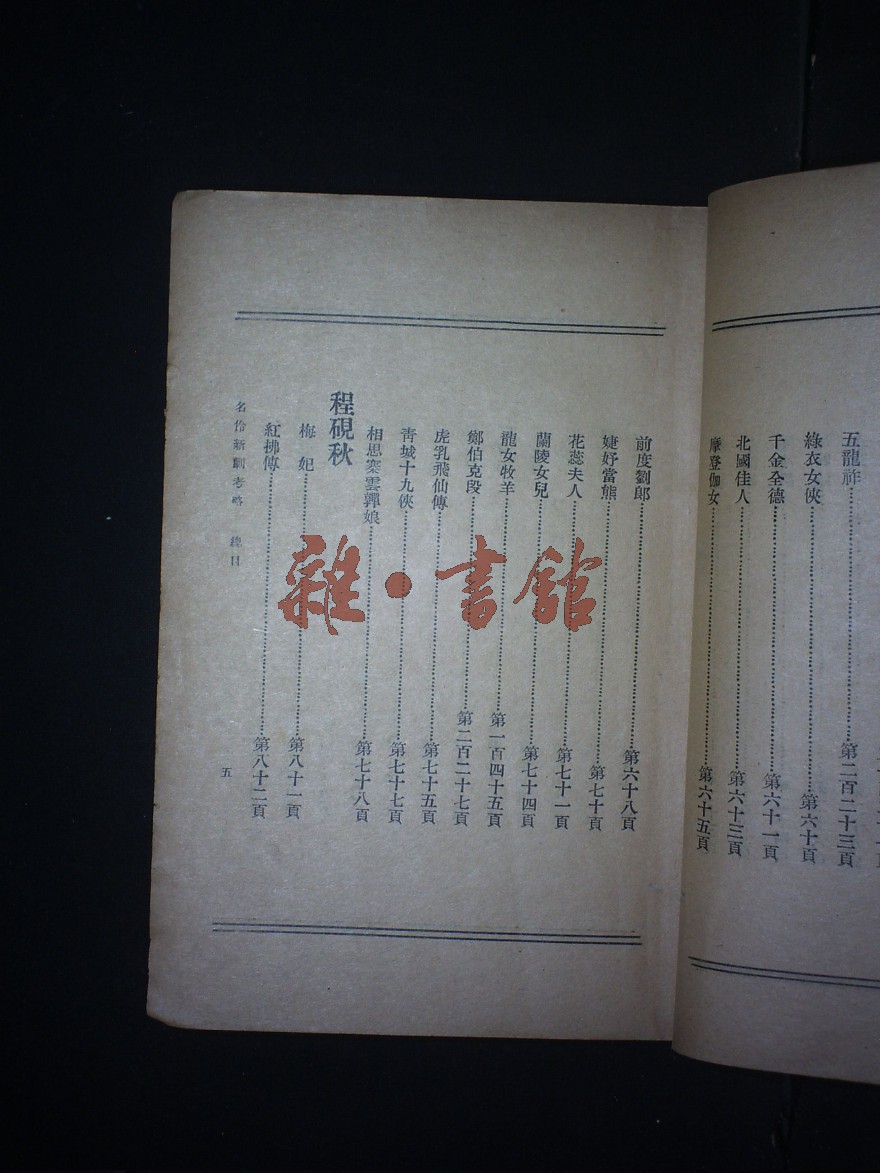 五龍祚……第二百二十三頁
綠衣女俠……第六十頁
千金全德……第六十一頁
北國佳人……第六十三頁
摩登伽女……第六十五頁
前度劉郎……第六十八頁
婕妤當熊……第七十頁
花蕊夫人……第七十一頁
蘭陵女兒……第七十四頁
龍女牧羊……第一百四十五頁
鄭伯克段……第二百二十七頁
虎乳飛仙傳……第七十五頁
靑城十九俠……第七十七頁
相思寨雲彈娘……第七十八頁
程硯秋
梅妃……第八十一頁
紅拂傳……第八十二頁
名伶新劇考略 總目
五
雜·書館